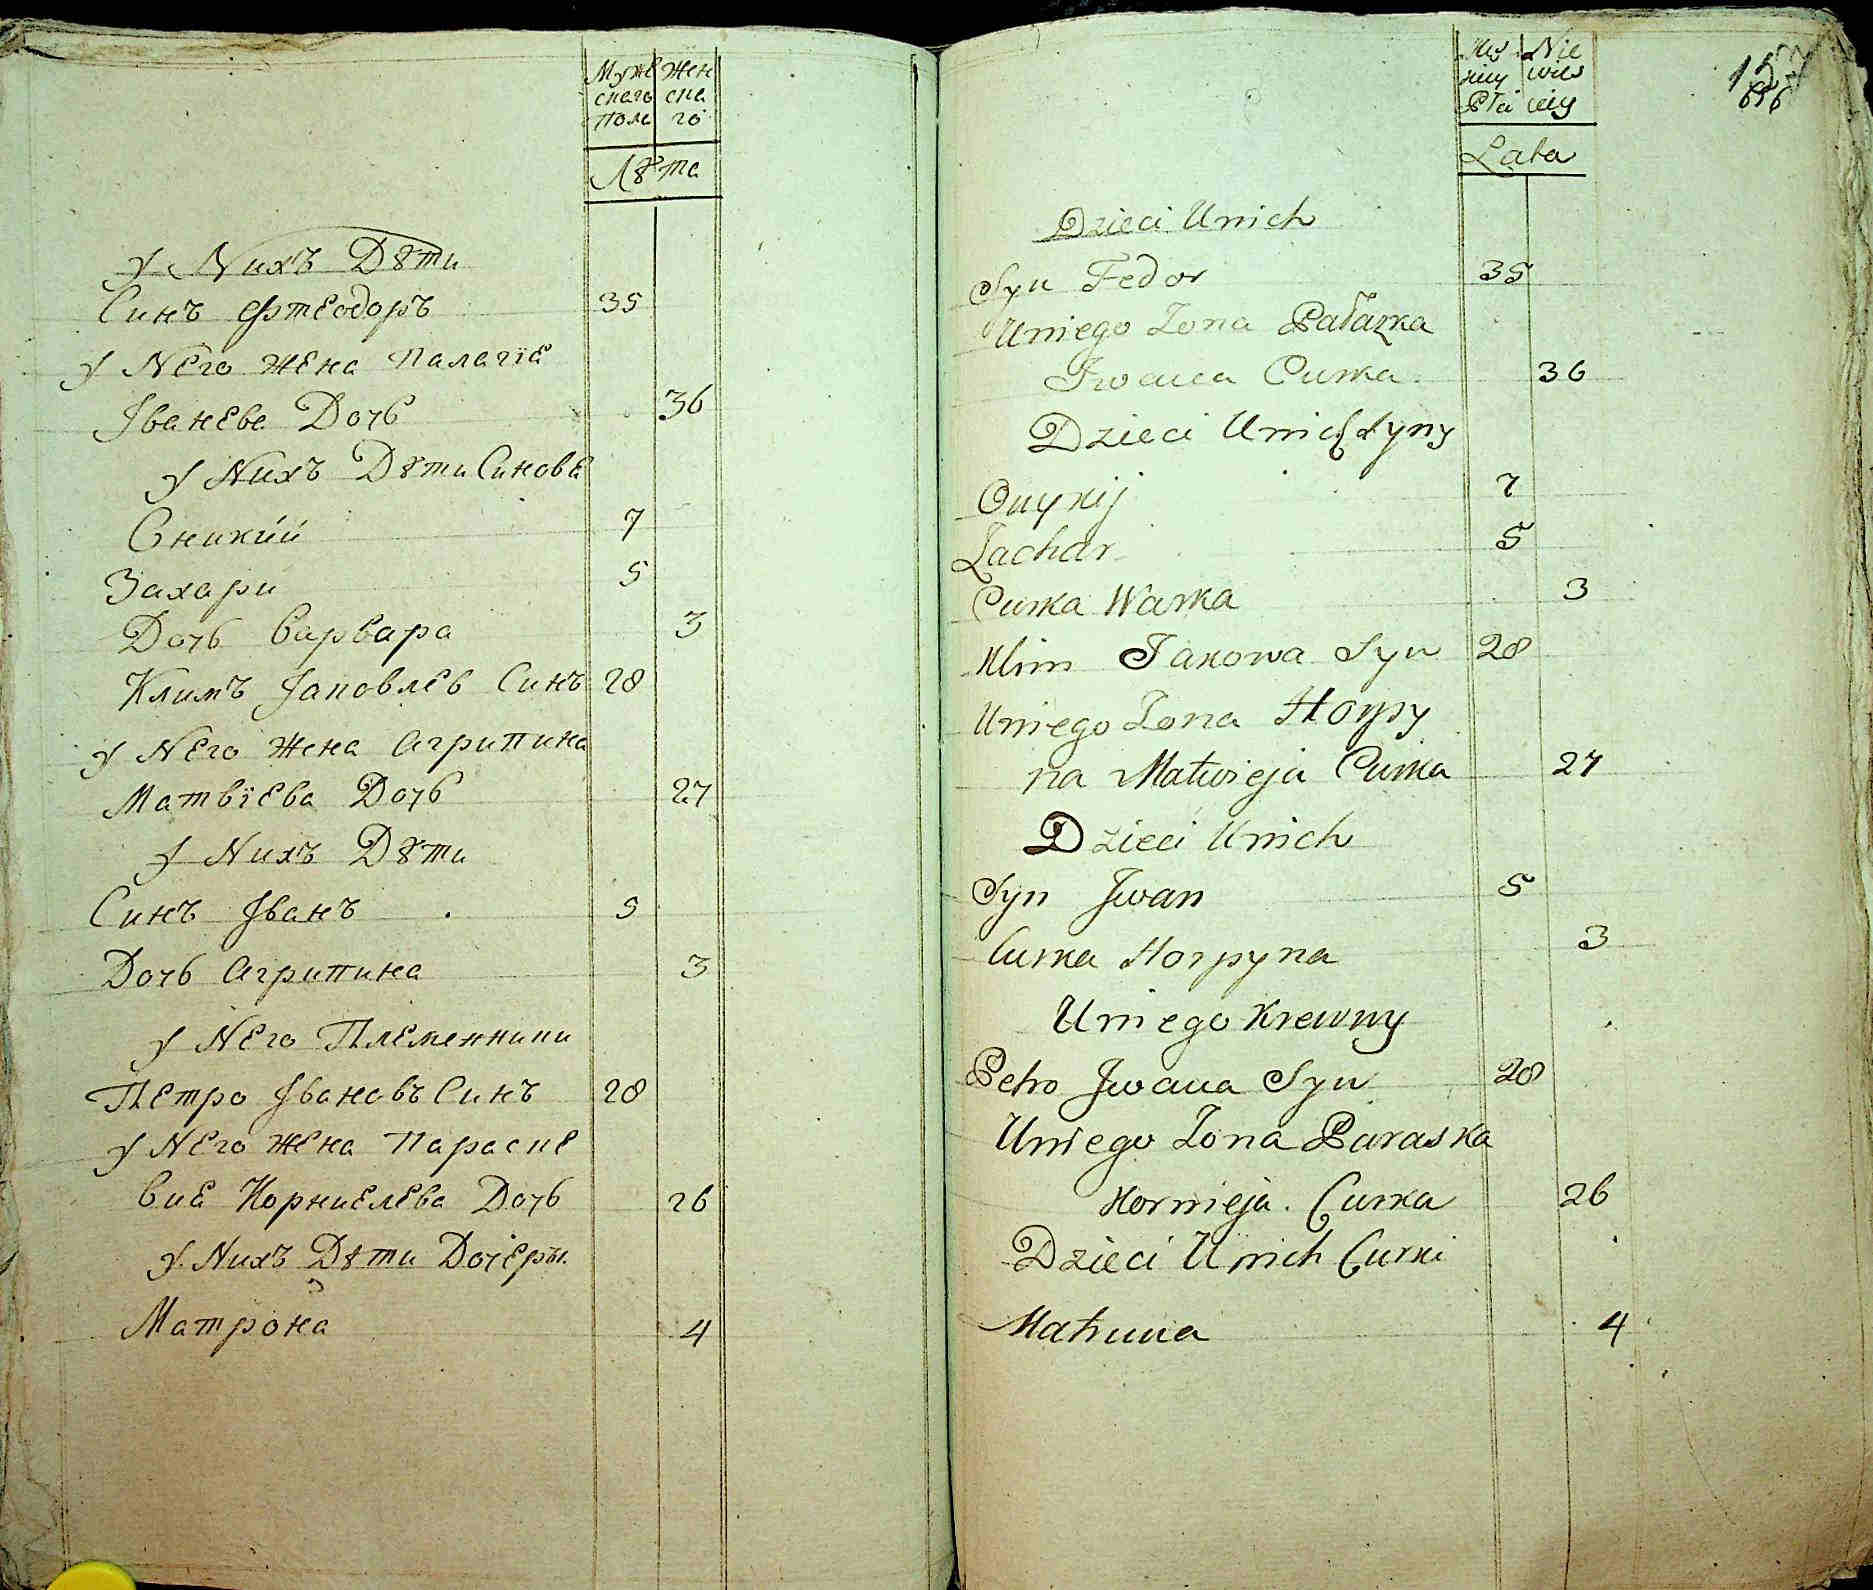 Муже Жен
скаго ска
пола го
Лѣта
У Нихъ Дѣти
Синъ Фтеодоръ 35
У Него жена Палагiе
Iванева Дочь 36
У Нихъ Дѣти Синове
Оникий 7
Захари 5
Дочь Варвара 3
Климъ Iаковлев Синъ 28
У Него жена Агрипина
Матвiева Дочь 27
У Нихъ Дѣти
Синъ Iванъ 5
Дочь Агрипина 3
У Него Племенники
Петро Iвановъ Синъ 28
У Него жена Параске
вие Корниелева Дочь 26
У Нихъ Дѣти Дочеры
Матрона 4
Męs Nie
kiy wies
Płci ciey
Lata
Dzieci U nich
Syn Fedor 35
U niego Zona Pałazka
Iwana Curka 36
Dzieci U nich Syny
Onykij 7
Zachar 5
Curka Warka 3
Klim Jakowa Syn 28
U niego Zona Horpy
na Matwieja Curka 27
Dzieci U nich
Syn Iwan 5
Curka Horpyna 3
U niego Krewny
Petro Iwana Syn 28
U niego Zona Paraska
Kornieja Curka 26
Dzieci U nich Curki
Matruna 4